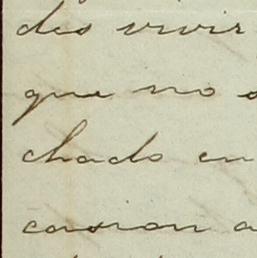 des vivir
que no
chado en
casion a